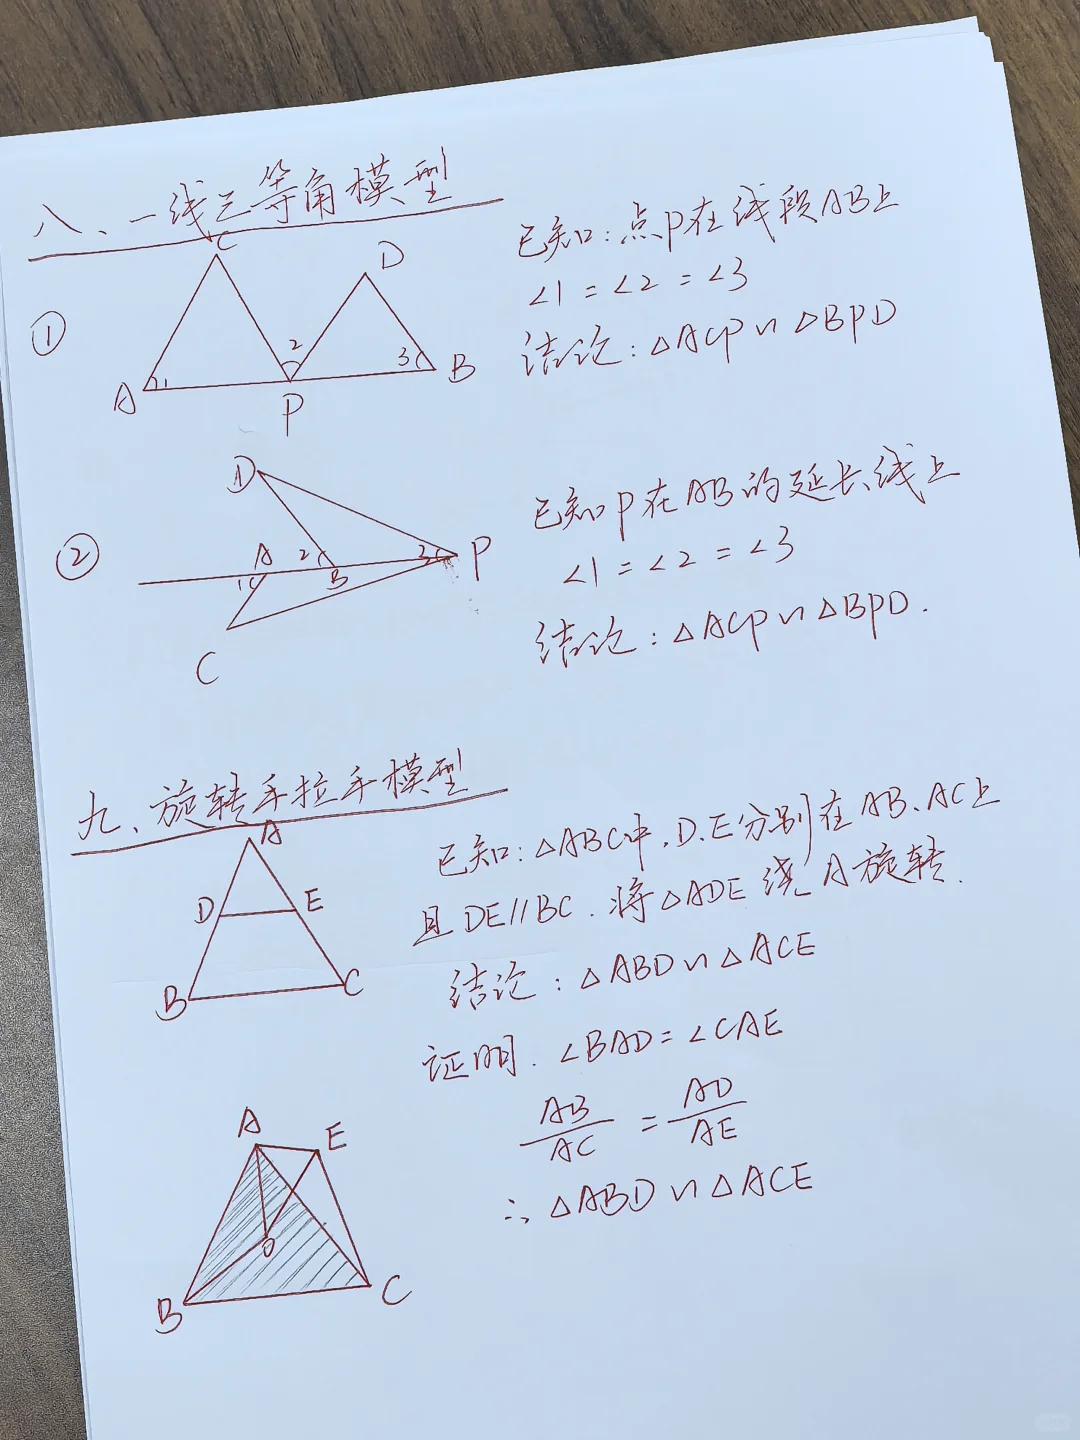 八、一线三等角模型
①
C
D
A
1
2
3
B
P
已知:点P在线段AB上
∠1=∠2=∠3
结论:△ACP∽△BPD
②
D
A
2
3
P
1
B
C
已知P在AB的延长线上
∠1=∠2=∠3
结论:△ACP∽△BPD.
九、旋转手拉手模型
A
D
E
B
C
已知:△ABC中,D.E分别在AB、AC上
且DE//BC.将△ADE绕A旋转.
结论:△ABD∽△ACE
证明.∠BAD=∠CAE
AB/AC=AD/AE
∴△ABD∽△ACE
A
E
D
B
C